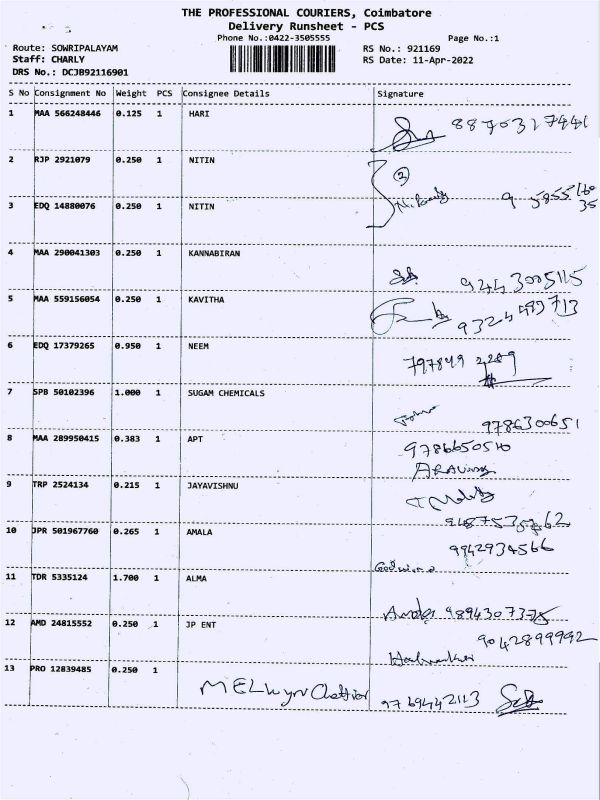 THE PROFESSIONAL COURIERS, Coimbatore
Delivery Runsheet - PCS
Phone No.:0422-3505555
Page No.:1
Route: SOWRIPALAYAM
RS No.: 921169
Staff: CHARLY
RS Date: 11-Apr-2022
DRS No.: DCJB92116901
S No Consignment No Weight PCS Consignee Details Signature
1 MAA 566248446 0.125 1 HARI 8870327441
2 RJP 2921079 0.250 1 NITIN
3 EDQ 14880076 0.250 1 NITIN
4 MAA 290041303 0.250 1 KANNABIRAN
9443005115
5 MAA 559156054 0.250 1 KAVITHA
6 EDQ 17379265 0.950 1 NEEM
797849 2289
7 SPB 50102396 1.000 1 SUGAM CHEMICALS
9786300651
8 MAA 289950415 0.383 1 APT 9786650510
9 TRP 2524134 0.215 1 JAYAVISHNU
10 JPR 501967760 0.265 1 AMALA
9942934566
11 TDR 5335124 1.700 1 ALMA
12 AMD 24815552 0.250 1 JP ENT
9042899992
13 PRO 12839485 0.250 1
MELwyn Chettiar 9769442113